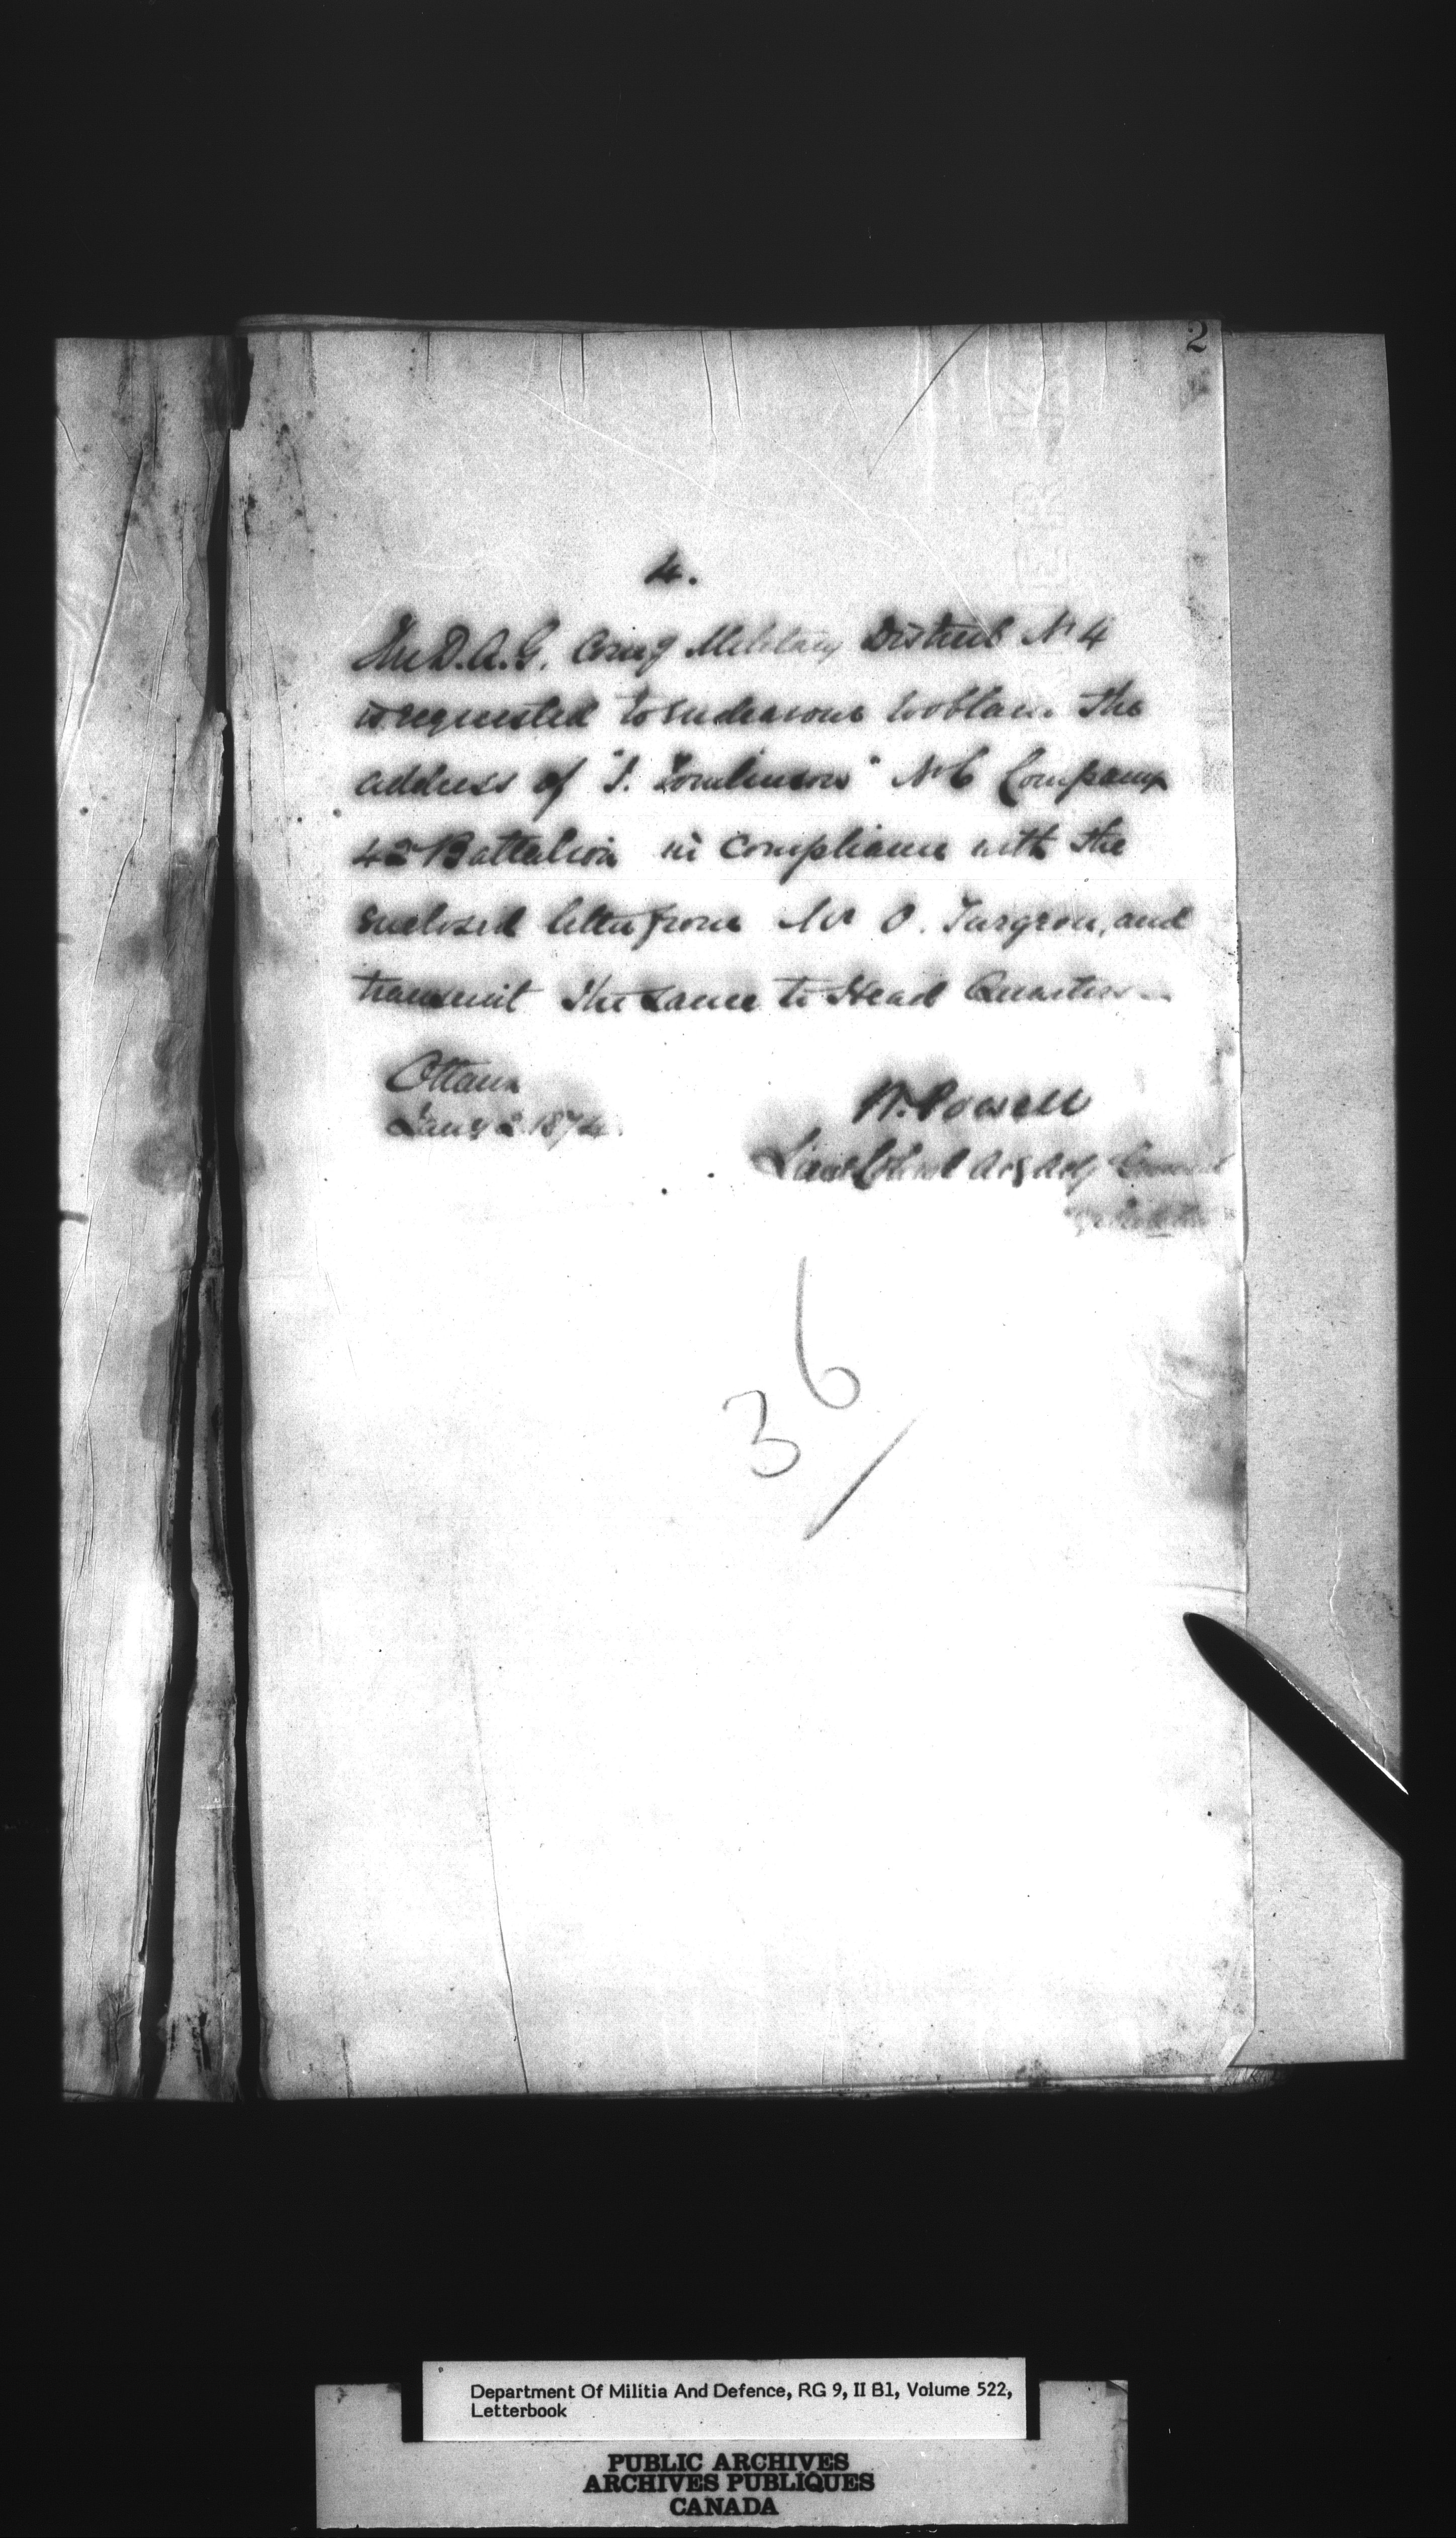 2
4.
The D.A.G. Comg Military District No 4
is requested to endeavour to obtain the
address of "J. Tomlinson" No 6 Company
42d Battalion in compliance with the
enclosed letter from Mr O. Turgeon, and
transmit the same to Head Quarters
Ottawa
Jany 2 1874.
W. Powell
Lieut Colonel Actg Adj General
36
Department Of Militia And Defence, RG 9, II B1, Volume 522,
Letterbook
PUBLIC ARCHIVES
ARCHIVES PUBLIQUES
CANADA